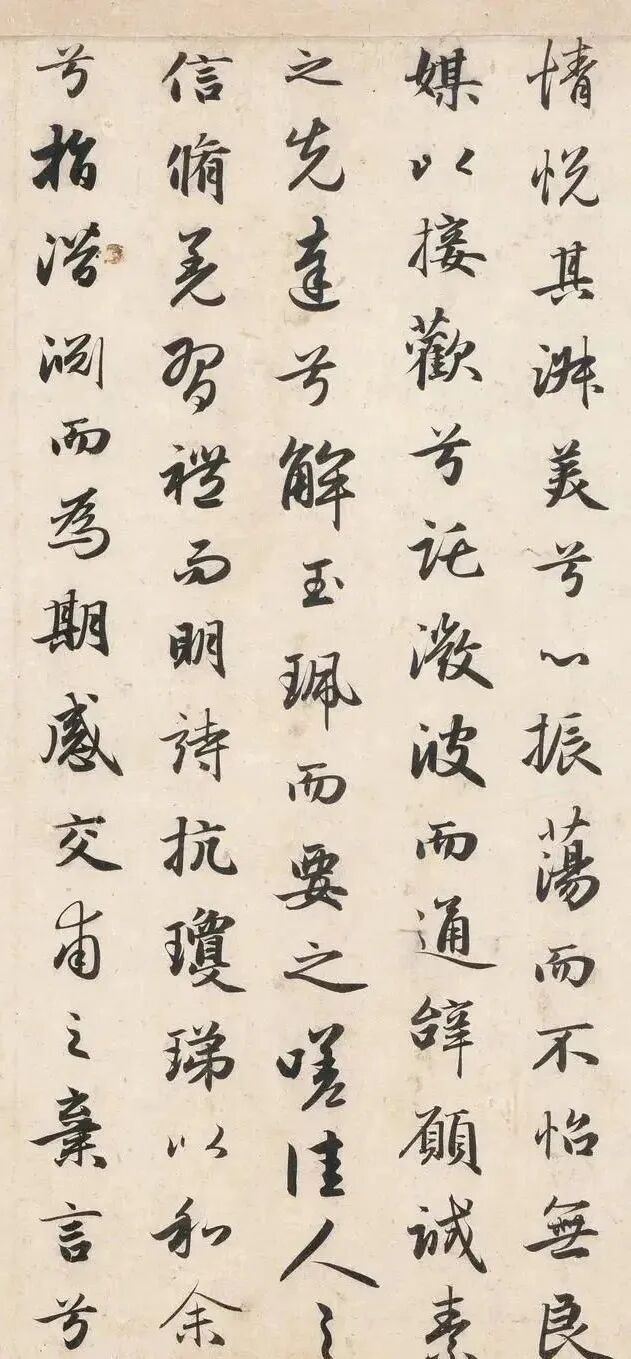 情悅其淑美兮心振蕩而不怡無良
媒以接歡兮託微波而通辭願誠素
之先達兮解玉珮而要之嗟佳人之
信脩羌習禮而明詩抗瓊珶以和余
兮指潛淵而為期感交甫之棄言兮